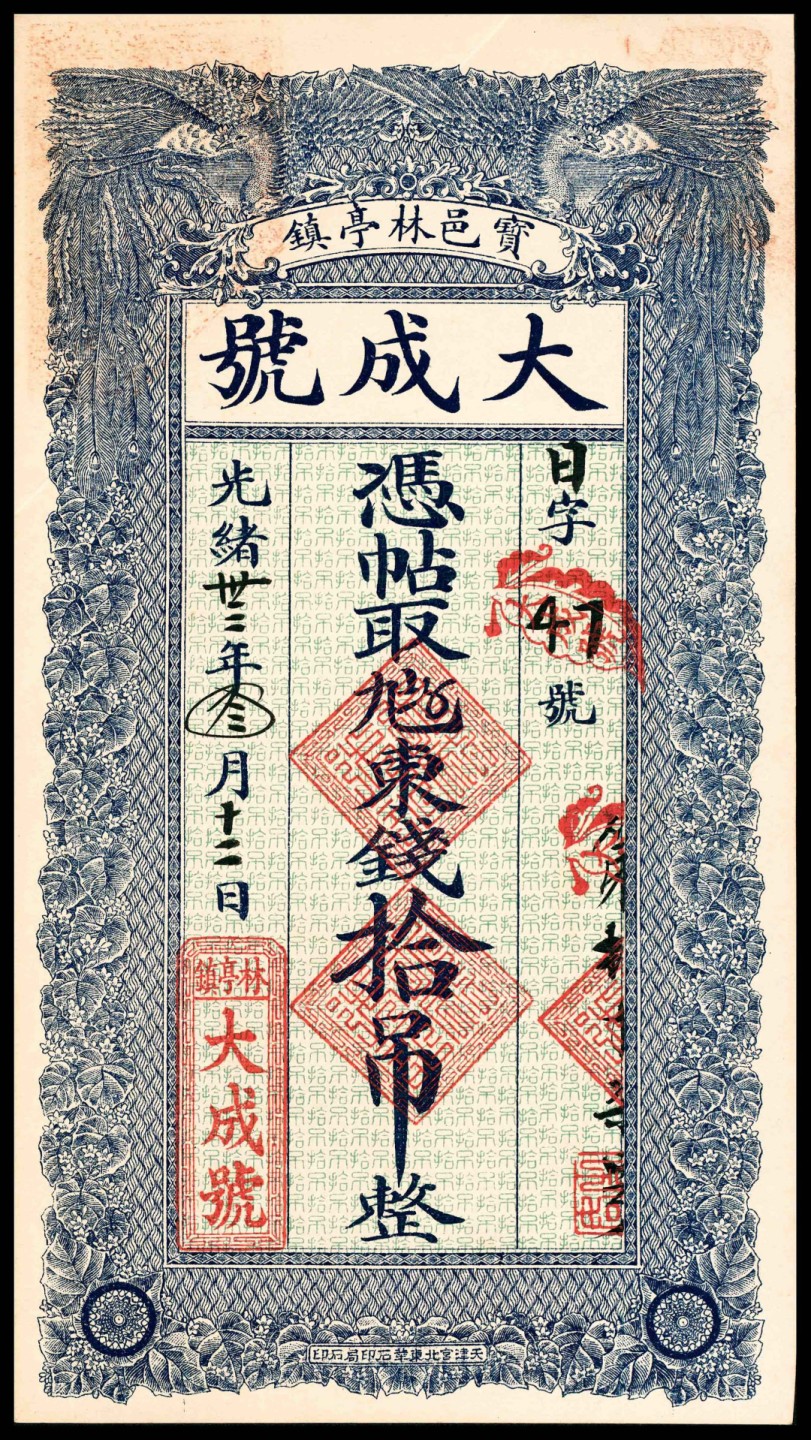 寶邑林亭鎮
大成號
日字47號
憑帖取東錢拾吊整
光緒卅二年叁月十二日
林亭鎮
大成號
天津宮北東華石印局石印